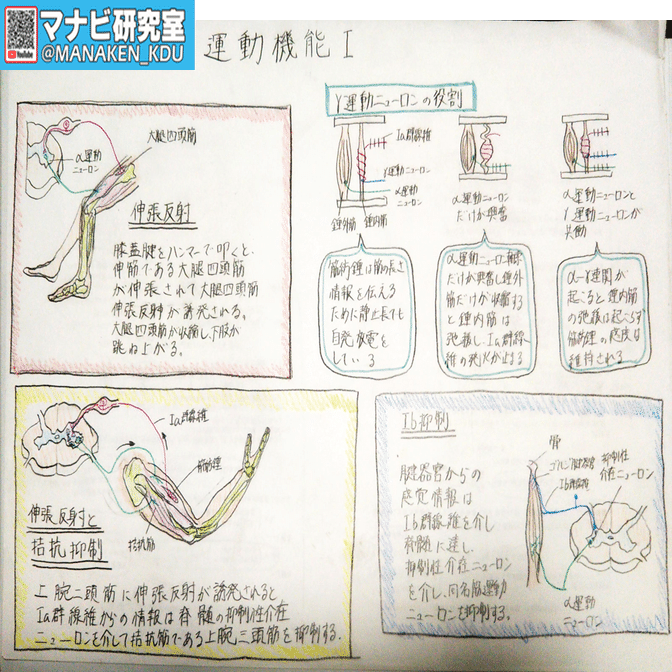 マナビ研究室
YouTube
@MANAKEN_KDU
運動機能 I
大腿四頭筋
α運動
ニューロン
伸張反射
膝蓋腱をハンマーで叩くと、
伸筋である大腿四頭筋
が伸張されて大腿四頭筋
伸張反射が誘発される。
大腿四頭筋が収縮し、下肢が
跳ね上がる。
γ運動ニューロンの役割
Ia群線維
γ運動ニューロン
α運動
ニューロン
錘外筋 錘内筋
α運動ニューロン
だけが興奮
α運動ニューロンと
γ運動ニューロンが
共働
筋紡錘は筋の長さ
情報を伝える
ために静止長でも
自発発電を
している
α運動ニューロン
だけが興奮し錘外
筋だけが収縮する
と錘内筋は
弛緩し、Ia群線
維の発火が止まる
α-γ連関が
起こると錘内筋
の弛緩は起こらず
筋紡錘の感度は
維持される
Ia群線維
筋紡錘
伸張反射と
拮抗抑制
拮抗筋
上腕二頭筋に伸張反射が誘発されると
Ia群線維からの情報は脊髄の抑制性介在
ニューロンを介して拮抗筋である上腕三頭筋を抑制する.
Ib抑制
腱器官からの
感覚情報は
Ib群線維を介し
脊髄に達し、
抑制性介在ニューロン
を介し、同名筋運動
ニューロンを抑制する。
骨
ゴルジ腱器官
Ib群線維
抑制性
介在ニューロン
α運動
ニューロン